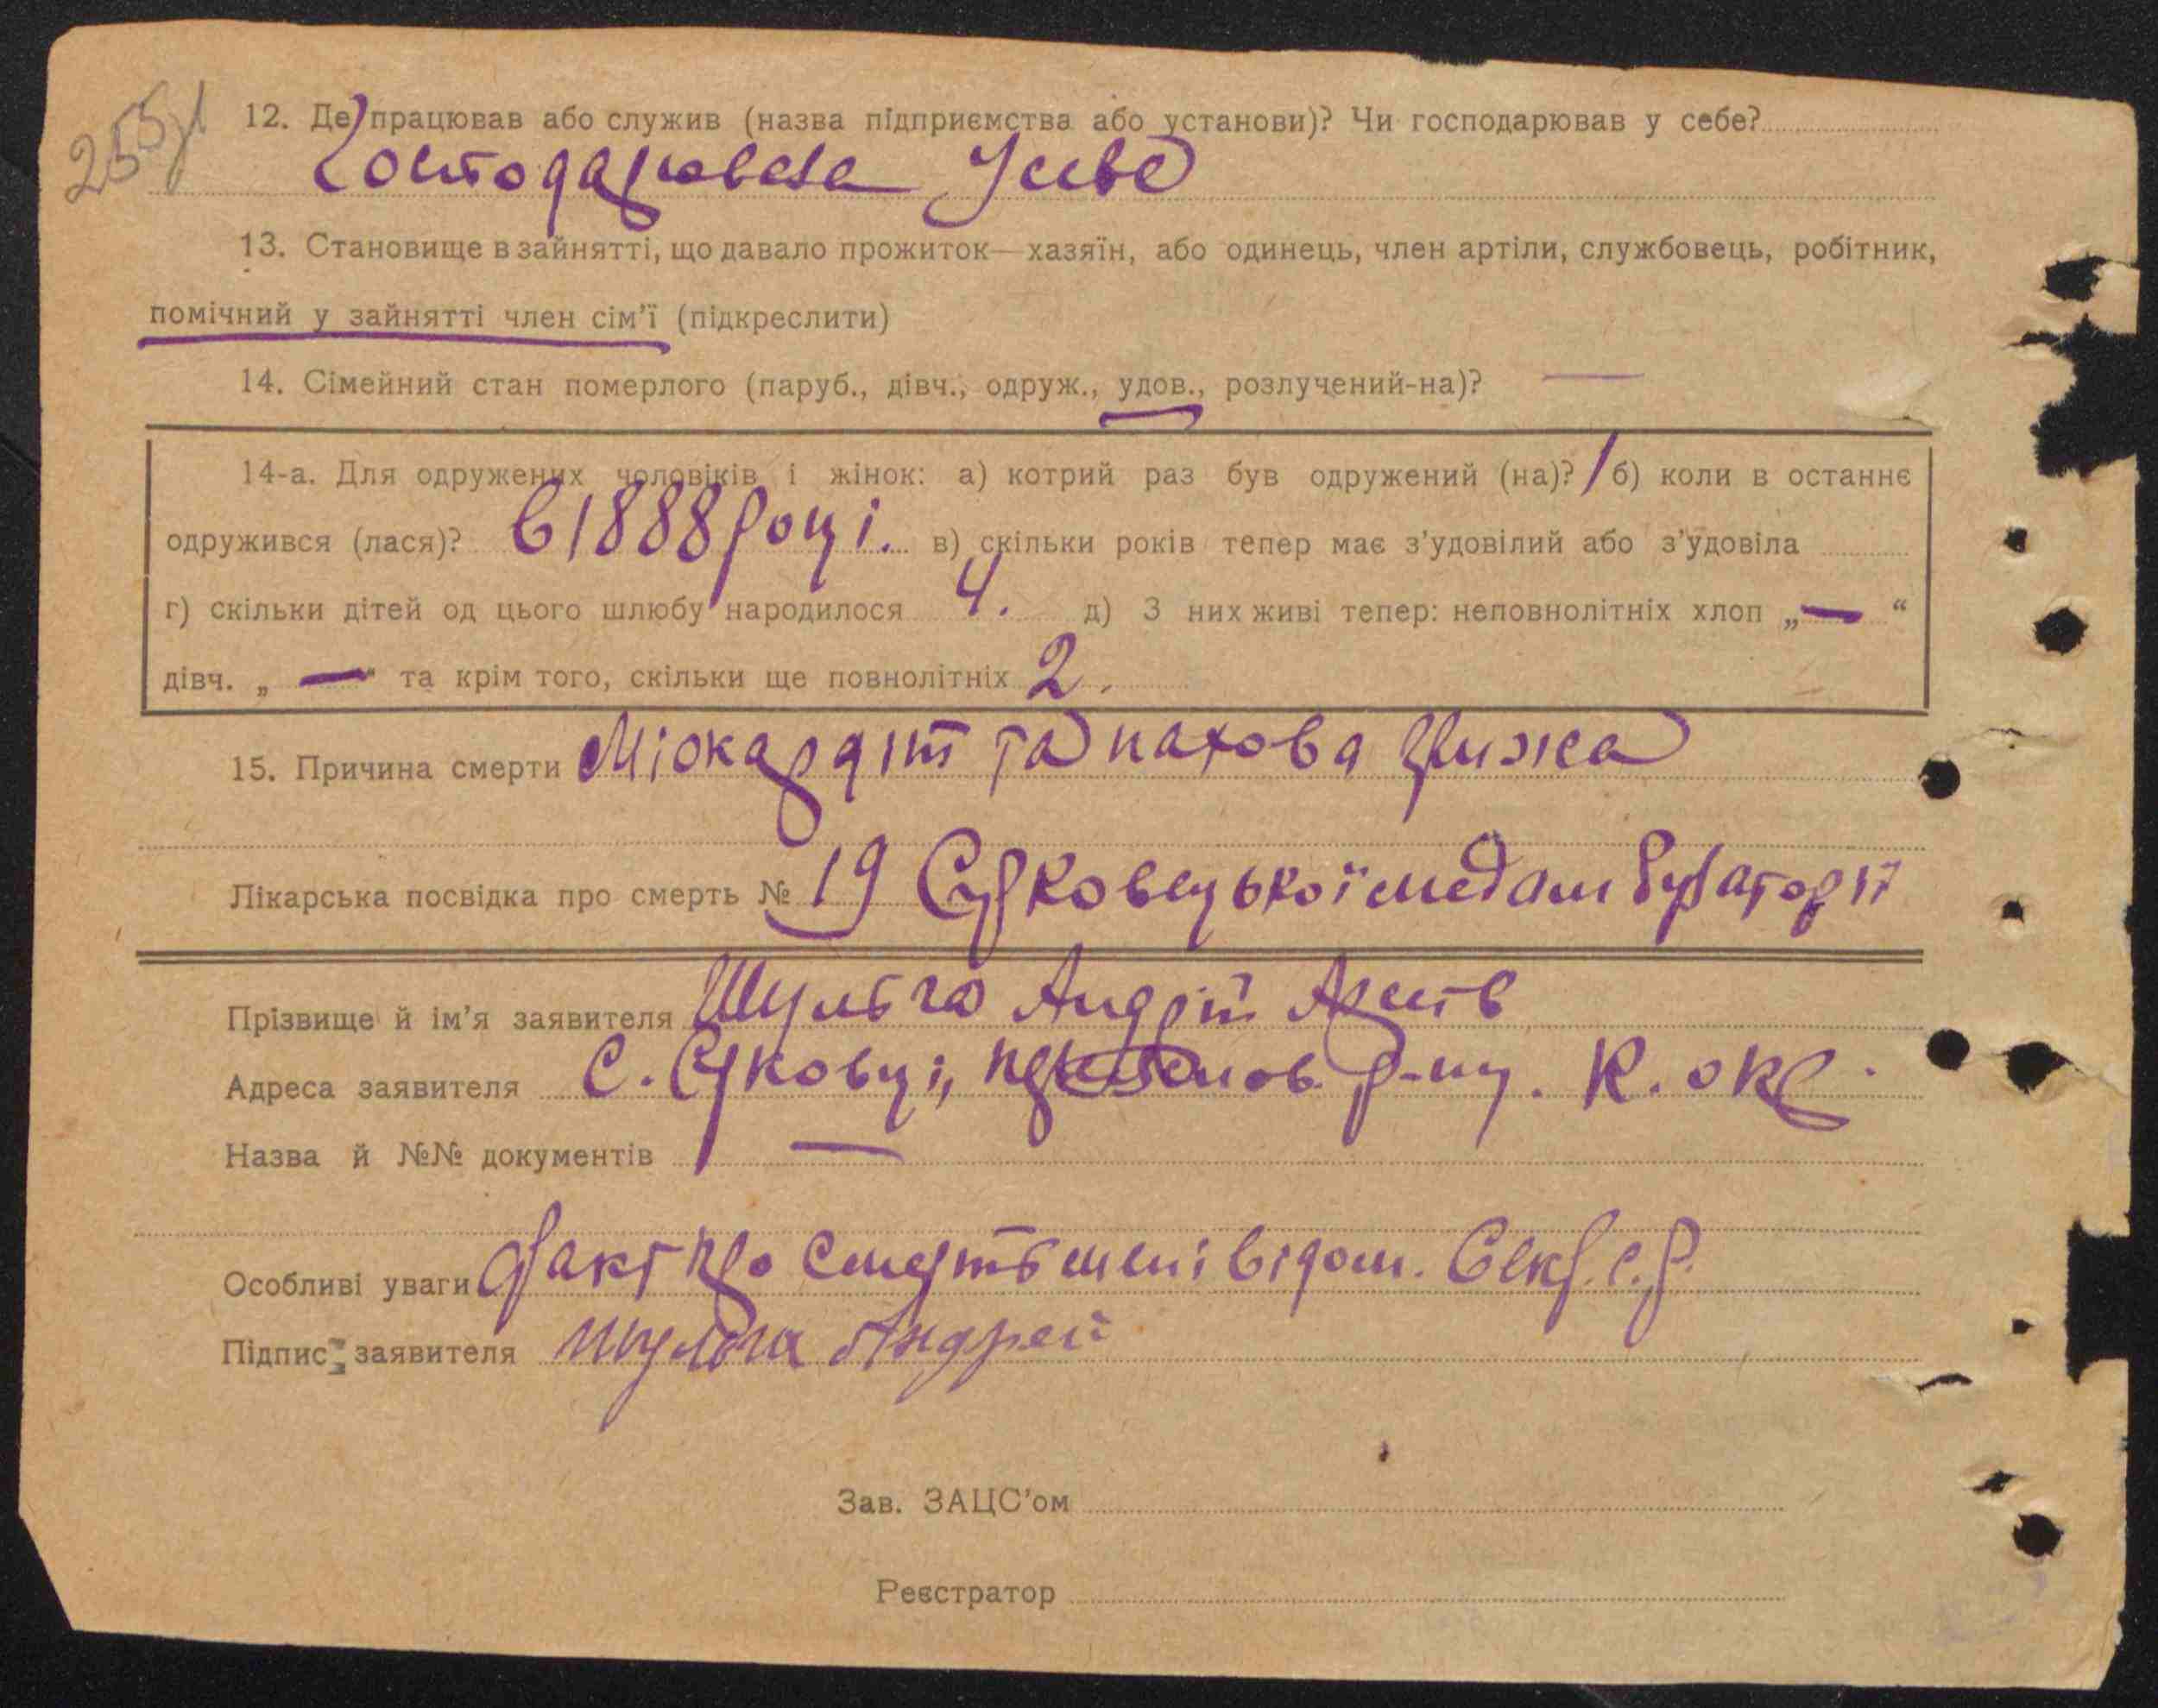 255
12. Де працював або служив (назва підприємства або установи)? Чи господарював у себе?
Господарювала
13. Становище в зайнятті, що давало прожиток—хазяїн, або одинець, член артіли, службовець, робітник,
помічний у зайнятті член сім'ї (підкреслити)
14. Сімейний стан померлого (паруб., дівч., одруж., удов., розлучений-на)? —
14-а. Для одружених чоловіків і жінок: а) котрий раз був одружений (на)? 1 б) коли в останнє
одружився (лася)? в 1888 році. в) скільки років тепер має з'удовілий або з'удовіла
г) скільки дітей од цього шлюбу народилося 4. д) З них живі тепер: неповнолітніх хлоп „—“
дівч. „—“ та крім того, скільки ще повнолітніх 2.
15. Причина смерти Міокардіт та пахова грижа
Лікарська посвідка про смерть № 19 Сурковецької медамбулаторії
Прізвище й ім'я заявителя Шульга Андрій
Адреса заявителя с. р-ну. К. окр.
Назва й №№ документів —
Особливі уваги факт про смерть мені відом. Секр. с. р.
Підпис заявителя Шульга Андрей
Зав. ЗАЦС'ом
Реєстратор